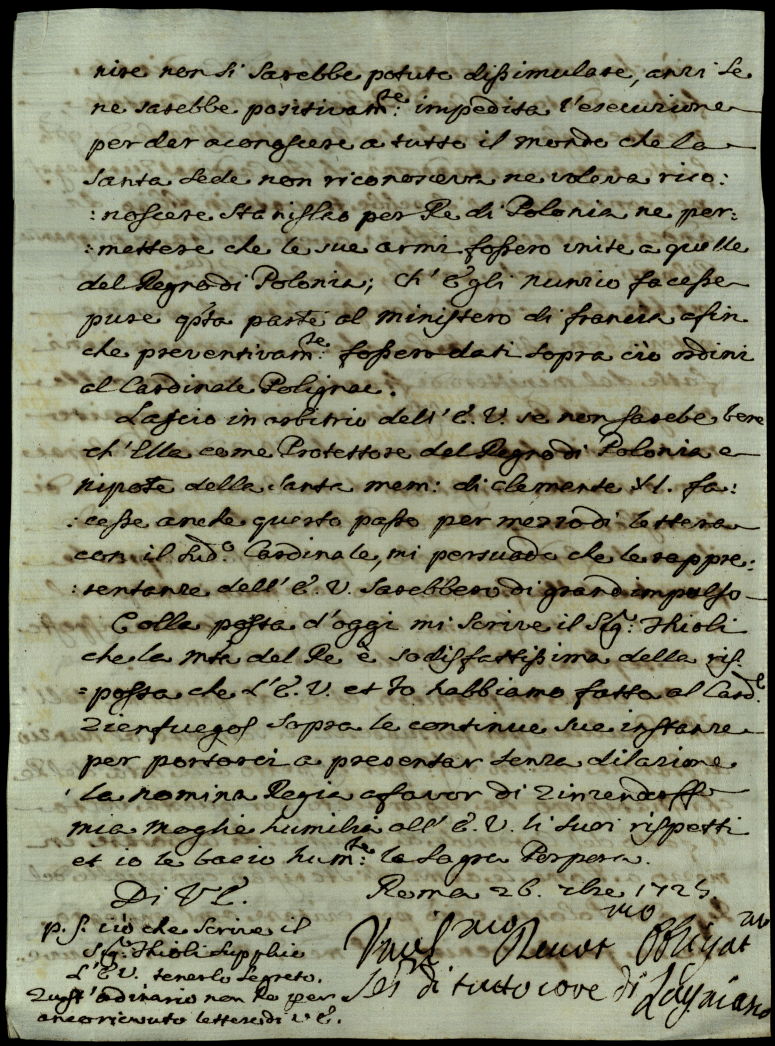 nire non si sarebbe potuto dissimulare, anzi se
ne sarebbe positivam.te impedita l'esecuzione
per dar a conoscere a tutto il mondo che la
Santa Sede non riconosceva ne voleva rico:
:noscere Stanislao per Re di Polonia ne per:
:mettere che le sue armi fossero unite a quelle
del Regno di Polonia; ch'Egli nunzio facesse
pure q.sta parte al ministero di francia afin
che preventivam.te fossero dati sopra ciò ordini
al Cardinale Polignac.
Lascio in arbitrio dell'E.V. se non sarebe bene
ch'Ella come Protettore del Regno di Polonia e
nipote della Santa mem: di Clemente XI. fa:
:cesse anche questo passo per mezzo di lettera
con il sud.o Cardinale, mi persuado che le rappre:
:sentanze dell'E.V. sarebbero di grand impulso
Colla posta d'oggi mi scrive il Sig.r Thioli
che la M.tà del Re è sodisfattissima della ris:
=posta che L'E.V. et Io habbiamo fatta al Card.e
Zienfuegos sopra le continue sue instanze
per portarci a presentar senza dilazione
la nomina Regia a favor di Zinzendorff
mia moglie humilia all'E.V. li suoi rispetti
et io le bacio hum.te la Sagra Porpora.
Di V.E. Roma 26.
p.s. ciò che scrive il
Sig.r Thioli supplico
L'E.V. tenerlo segreto.
Quest'ordinario non ho per
anco ricevuto lettere di V.E.
di tutto core